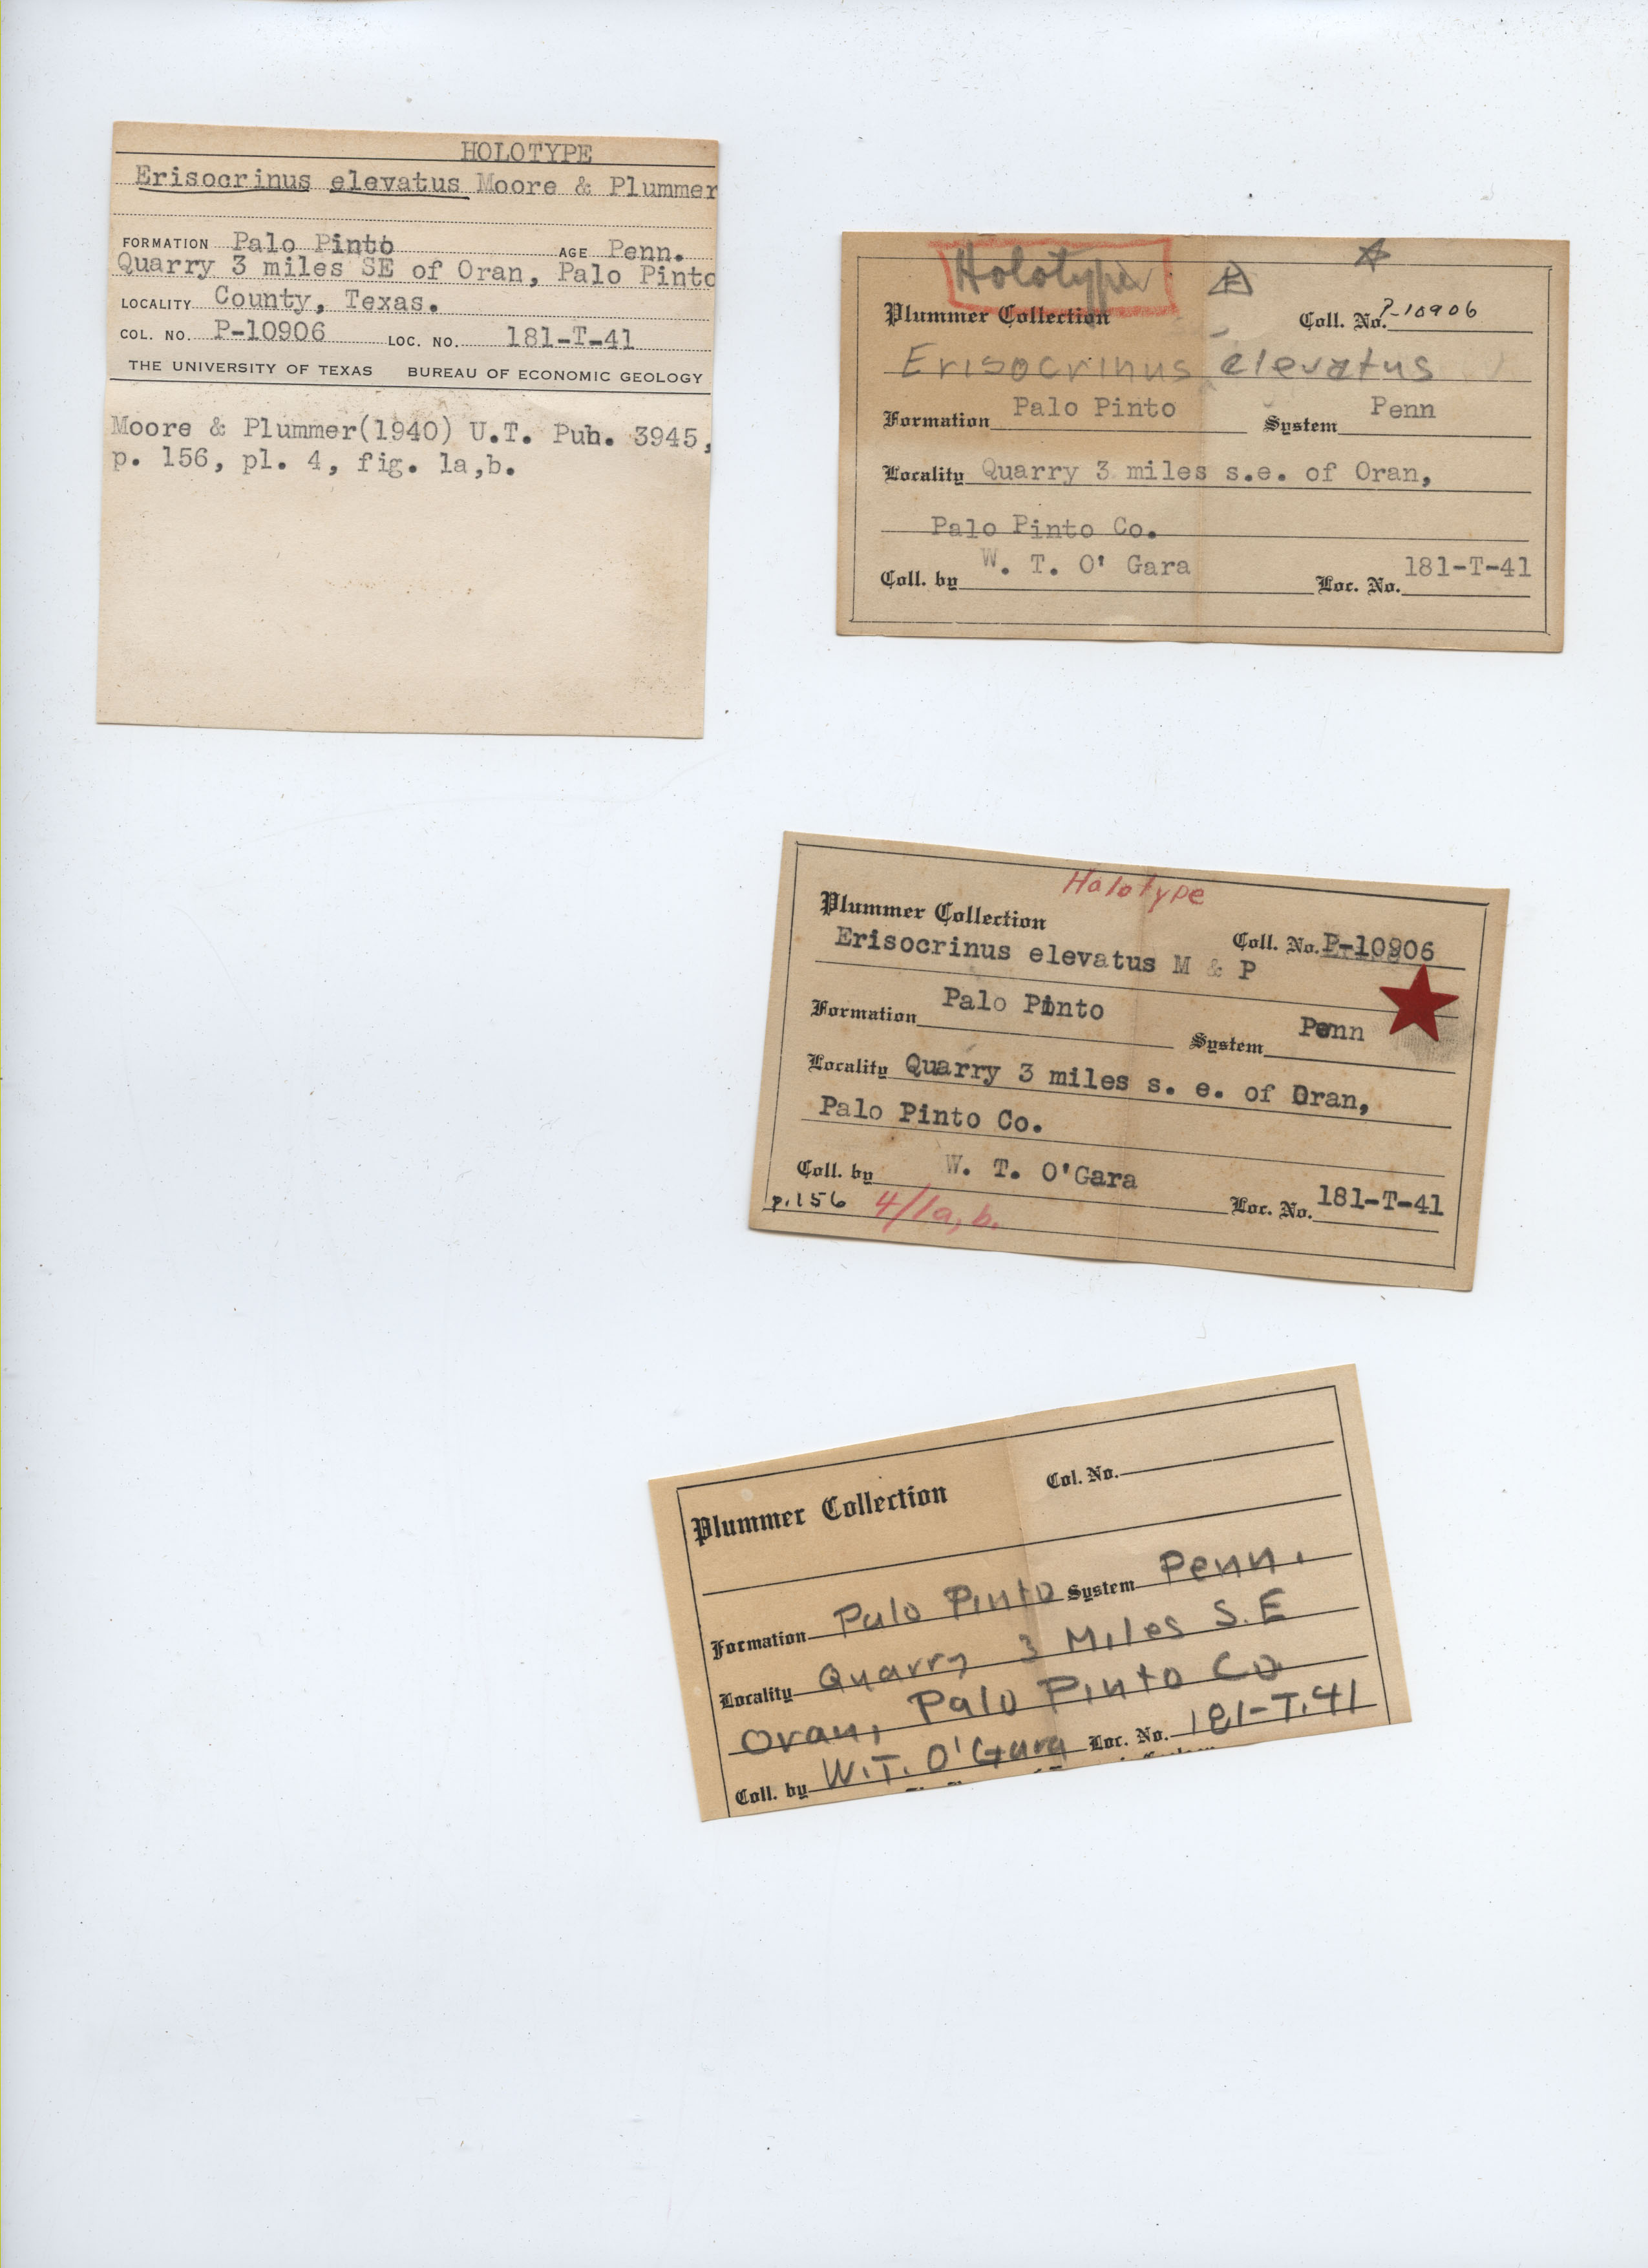 HOLOTYPE
Erisocrinus elevatus Moore & Plummer
FORMATION Palo Pinto AGE Penn.
Quarry 3 miles SE of Oran, Palo Pinto
LOCALITY County, Texas.
COL. NO. P-10906 LOC. NO. 181-T-41
THE UNIVERSITY OF TEXAS BUREAU OF ECONOMIC GEOLOGY
Moore & Plummer(1940) U.T. Puh. 3945,
p. 156, pl. 4, fig. 1a,b.
Holotype
Plummer Collection Coll. No. P-10906
Erisocrinus elevatus
Formation Palo Pinto System Penn
Locality Quarry 3 miles s.e. of Oran,
Palo Pinto Co.
Coll. by W. T. O' Gara Loc. No. 181-T-41
Holotype
Plummer Collection Coll. No. P-10906
Erisocrinus elevatus M & P
Formation Palo Pinto System Penn
Locality Quarry 3 miles s. e. of Oran,
Palo Pinto Co.
Coll. by W. T. O'Gara Loc. No. 181-T-41
p.156 4/1a,b.
Plummer Collection Col. No.
Formation Palo Pinto System Penn.
Locality Quarry 3 Miles S.E
Oran, Palo Pinto Co
Coll. by W.T. O'Gara Loc. No. 181-T-41